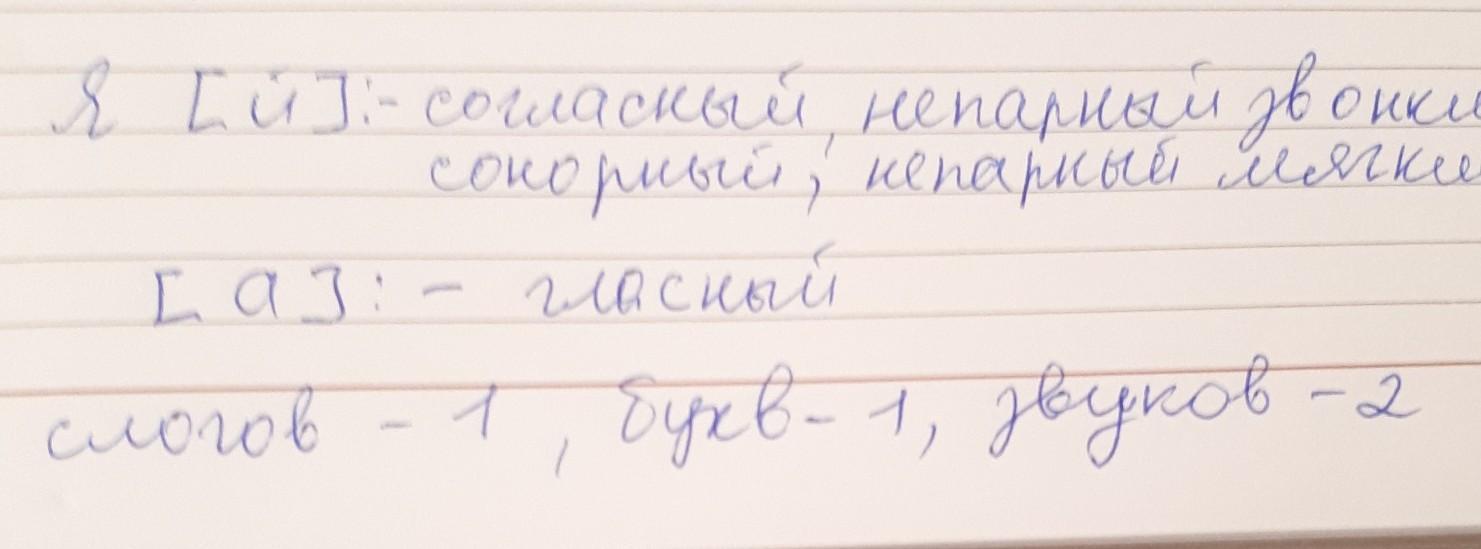 Я [й]:- согласный, непарный звонки
сонорный; непарный мягки
[а]:- гласный
слогов - 1, букв - 1, звуков - 2